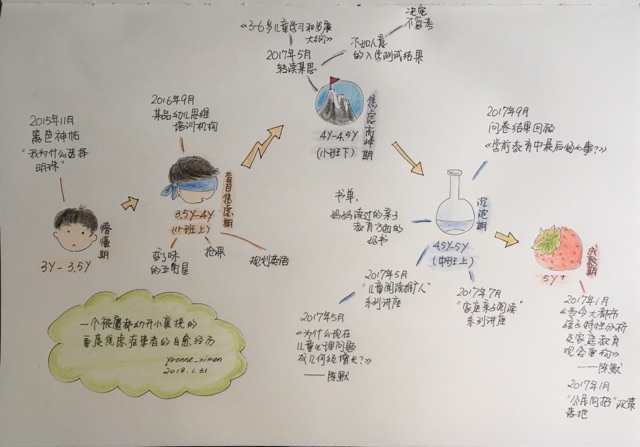 2015年11月
篱笆神帖
“我为什么选择
明珠”
3Y-3.5Y
懵懂期
2016年9月
某品幼儿思维
培训机构
3.5Y-4Y
(小班上)
盲目焦虑期
变了味
的五角星
抢杯
规划英语
《3-6岁儿童学习和发展
大纲》
2017年5月
转读集思
不如人意
的入学测试结果
决定
不幼考
4Y-4.5Y
(小班下)
焦虑高峰期
书单:
妈妈读过的亲子
教育飞跑的
好书
4.5Y-5Y
(中班上)
沉淀期
2017年5月
“儿童阅读推广人”
系列讲座
2017年5月
《为什么现在
儿童心理问题
成几何级增长?》
——陈默
2017年7月
“家庭亲子阅读”
系列讲座
2017年9月
问卷结果回验
《学前教育中最后的小事?》
5Y+
成熟期
2017年1月
《当今大都市
孩子特性分析
及家庭教育
观念重构》
——陈默
2017年1月
“公民同招”政策
落地
一个被魔都幼升小裹挟的
重度焦虑症患者的自愈经历
yvonne_ximan
2018.1.31